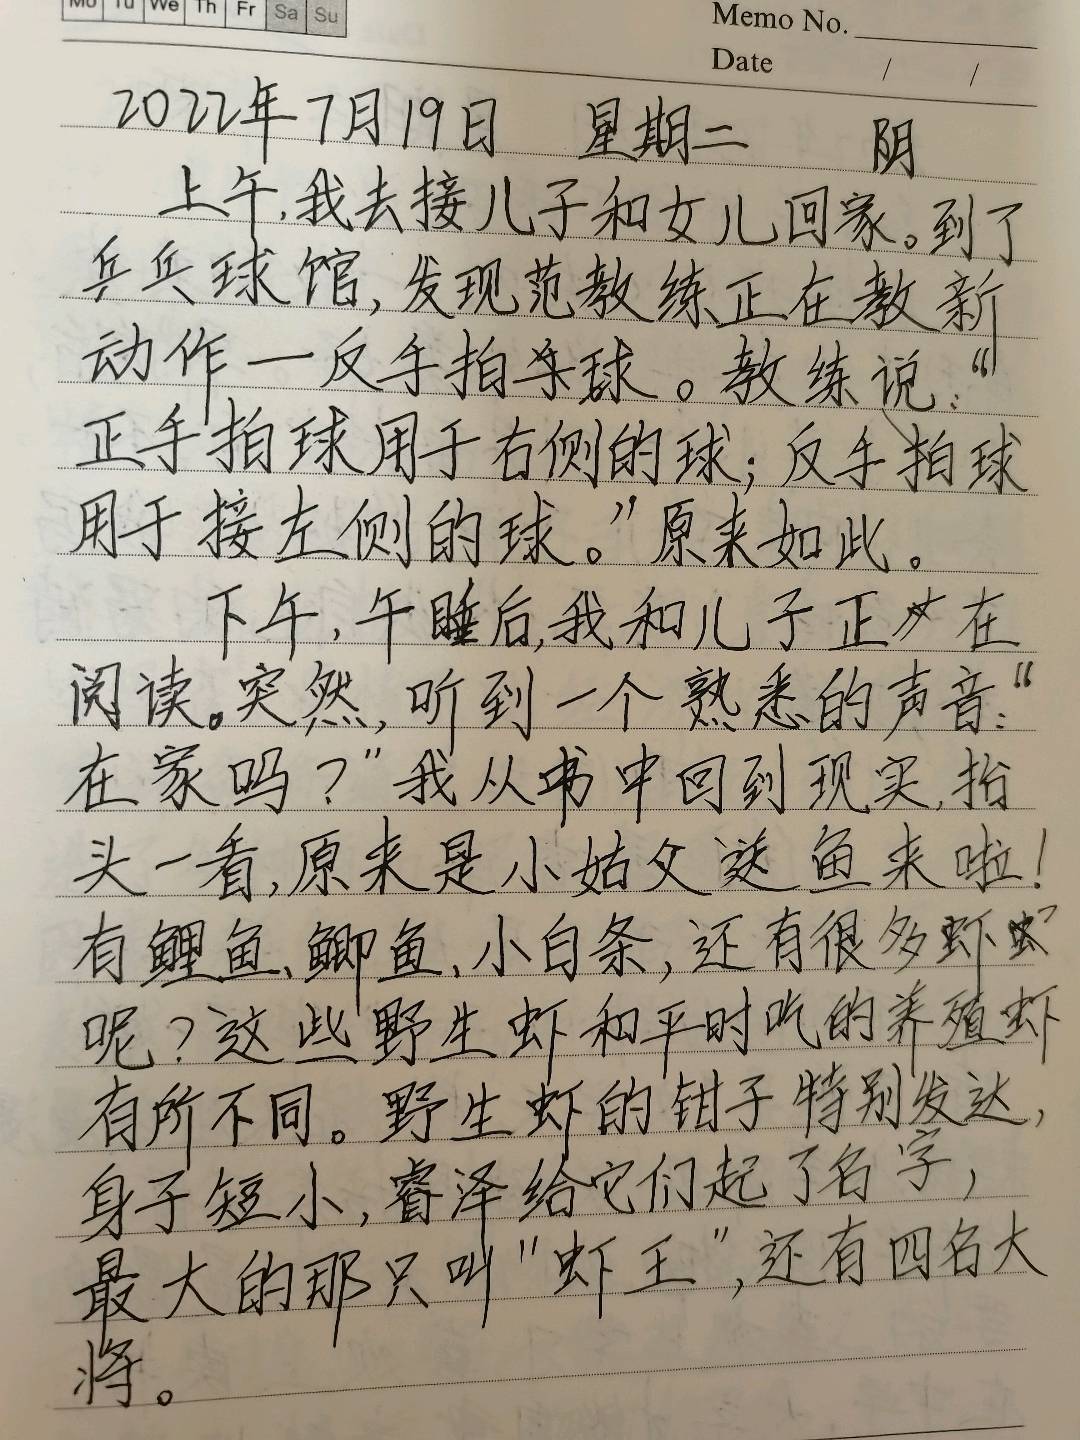 Mo Tu We Th Fr Sa Su
Memo No.
Date / /
2022年7月19日 星期二 阴
上午,我去接儿子和女儿回家。到了
乒乓球馆,发现范教练正在教新
动作一反手拍杀球。教练说:“
正手拍球用于右侧的球;反手拍球
用于接左侧的球。”原来如此。
下午,午睡后,我和儿子正在
阅读。突然,听到一个熟悉的声音:“
在家吗?”我从书中回到现实,抬
头一看,原来是小姑父送鱼来啦!
有鲤鱼、鲫鱼、小白条,还有很多虾
呢?这些野生虾和平时吃的养殖虾
有所不同。野生虾的钳子特别发达,
身子短小,睿泽给它们起了名字,
最大的那只叫"虾王",还有四名大
将。